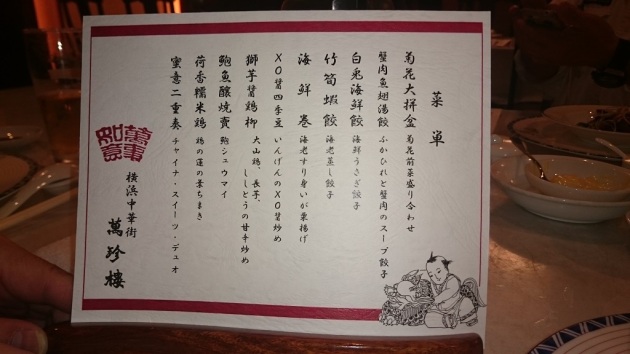 菜單
菊花大拼盆 菊花前菜盛り合わせ
蟹肉魚翅湯餃 ふかひれと蟹肉のスープ餃子
白兎海鮮餃 海鮮うさぎ餃子
竹筍蝦餃 海老蒸し餃子
海鮮巻 海老すり身いが栗揚げ
XO醤四季豆 いんげんのXO醤炒め
獅芋醤鶏柳 大山鶏、長芋、
ししとうの甘辛炒め
鮑魚釀焼賣 鮑シュウマイ
荷香糯米鶏 鶏の蓮の葉ちまき
蜜意二重奏 チャイナ・スイーツ・デュオ
横浜中華街
萬珍樓
萬事
如意